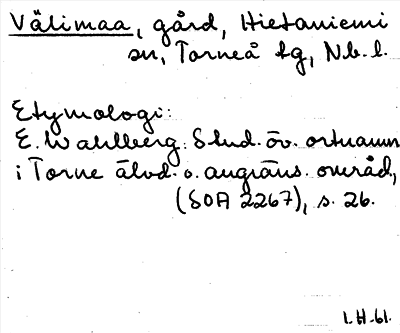 Välimaa, gård, Hietaniemi
sn, Torneå tg, Nb. l.
Etymologi:
E. Wahlberg: Stud. öv. ortnamn
i Torne älvd. o. angräns. område,
(SOA 2267), s. 26.
I.H-61.